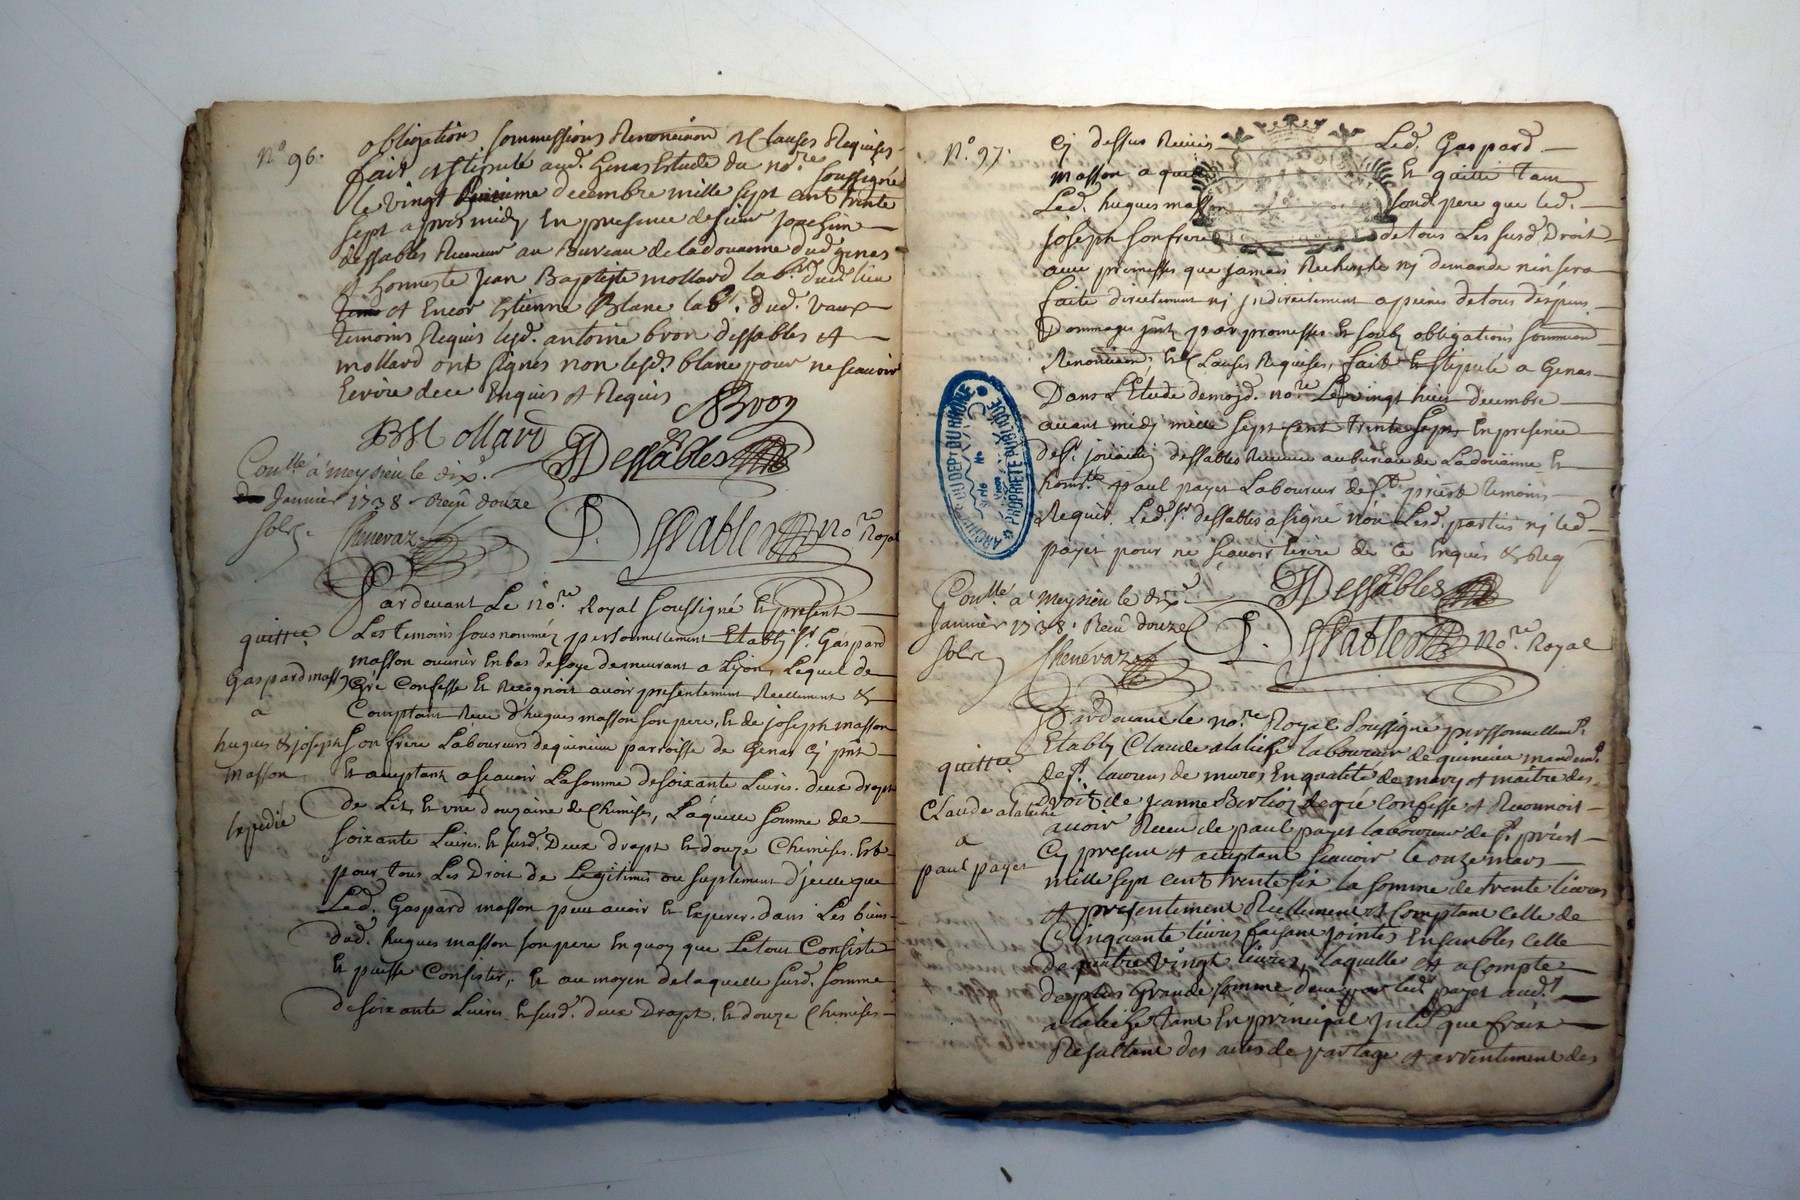 N.º 96.
obligations soummissions Renonciaon & Clauses Requises
fait et stipulé aud. Genas Estude du no.re soussigné
le vingt decembre mille sept cent trente
sept apres midy En presence de sieur Joachim
dessables Receveur au Bureau de la doüanne dud. genas
et honneste Jean Baptiste mollard lab.r dud. lieu
et Encor Etienne Blanc lab.r dud. Vaux
temoins Requis lesd. antoine bron dessables et
mollard ont signés non lesd. blanc pour ne scavoir
Ecrire de ce Enquis et Requis
ABron
B Mollard
JDessables
Con.lle à meysieu le dix.
Janvier 1738 Reçu douze
sols.
Chenevaz
P. Dessables no.re Royal
Pardevant Le no.re Royal soussigné Et present
Les temoins sousnommés personnellement Etably s.r Gaspard
masson ouvrier En bas de soye demeurant a Lyon, Lequel de
Gré Confesse Et Recognoit avoir presentement Reellement &
Comptant Receu d'hugues masson son pere, Et de joseph masson
son frere Laboureurs de quincieu parroisse de Genas cy pnt
Et acceptant ascavoir La somme de soixante Livres. deux drapt
de Lit, Et une douzaine de Chemises, Laquelle somme de
soixante Livres. Et susd. Deux drapt Et douze Chemises. Est
pour tous Les Droit de Legitimes ou suplement d'jcelle que
Led. Gaspard masson peut avoir Et Esperer dans Les biens
dud. hugues masson son pere En quoy que Le tout Consiste
Et puisse Consister, Et au moyen de laquelle susd. somme
de soixante Livres Et susd. deux Drapt. Et douze Chemises
quittce
Gaspard masson
a
hugues & joseph
masson
Expedié
N.º 97.
Cy dessus Receus Led. Gaspard
masson a quitté Et quitte tant
Led. hugues masson sond. pere que led.
joseph son frere de tous Les susd. Droit
avec promesses que jamais Recherche nj demande n'en sera
faite directement nj Indirectement a peines de tous dépens
Dommages par promesses Et soub obligations soummion
Renonciaon, Et Clauses Requises, fait Et stipulé a Genas
Dans L'Etude de moyd. no.re Le vingt huit decembre
avant midj mille sept cent trente sept En presence
de s.r joüachim dessables Receveur au bureau de La doüanne Et
honn.te paul payet Laboureur de s.t priest temoins
Requis. Led. s.r dessables a signé non Lesd. parties nj led.
payet pour ne sçavoir Ecrire de ce Enquis & Req
JDessables
Con.lle à meysieu le dix
Janvier 1738. Reçu douze
sols
Chenevaz
P. Dessables no.re Royal
ARCHIVES DU DEPT DU RHONE
PROPRIÉTÉ PUBLIQUE
Pardevant le no.re Royal soussigné personnellem.t
Etably Claude alaliche laboureur de quincieu mandem.t
de s.t laurens de mures En qualité de mary et maitre des
Droit de Jeanne Berlioz de gré Confesse et Reconnoit
avoir Receu de paul payet laboureur de s.t priest
Cy present et acceptant sçavoir le onze mars
mille sept cent trente six la somme de trente livres
et presentement Reellement et Comptant celle de
Cinquante livres faisant jointes Ensembles celle
de quatre vingt livres, laquelle est a compte
de plus Grande somme deüe par led. payet aud.
alaliche tant En principal que frais
Resultant des actes de partage et arrentement des
quittce
Claude alaliche
a
paul payet